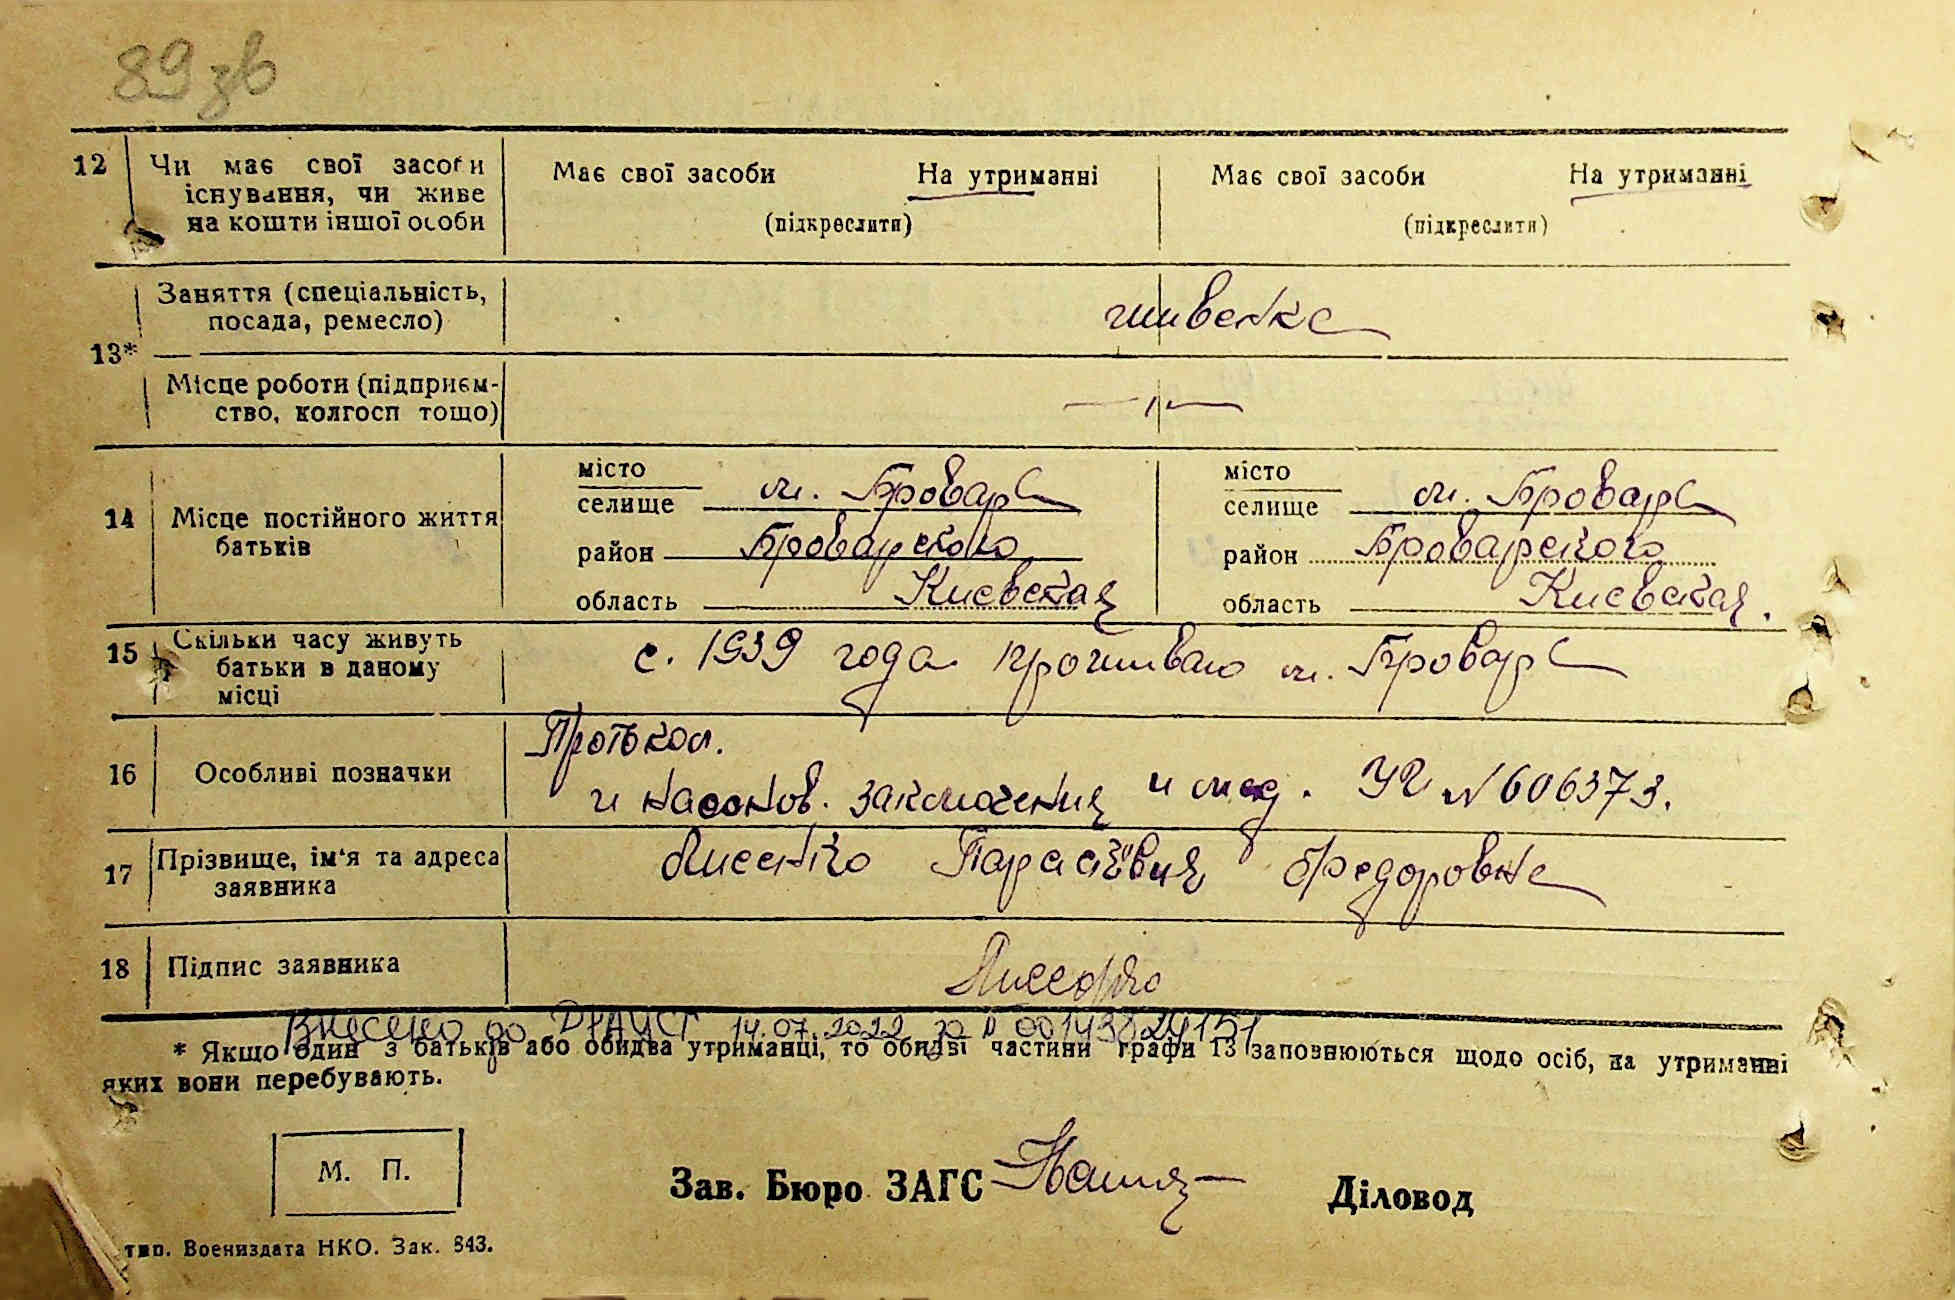 89 зв
12 Чи має свої засоби Має свої засоби На утриманні Має свої засоби На утриманні
існування, чи живе
на кошти іншої особи (підкреслити) (підкреслити)
Заняття (спеціальність,
посада, ремесло)
13*
Місце роботи (підприєм-
ство, колгосп тощо) — " —
14 Місце постійного життя
батьків
місто
селище м. Бровары
район Броварского
область Киевская
місто
селище м. Бровары
район Броварского
область Киевская.
15 Скільки часу живуть с. 1939 года проживаю м. Бровары
батьки в даному
місці
16 Особливі позначки
и заключения и мед. № 606373.
17 Прізвище, ім'я та адреса
заявника Федоровна
18 Підпис заявника
Внесено до ДРАЦСГ 14.07.2022 за №
* Якщо один з батьків або обидва утриманці, то обидві частини графи 13 заповнюються щодо осіб, на утриманні
яких вони перебувають.
М. П.
Зав. Бюро ЗАГС Діловод
тип. Воениздата НКО. Зак. 843.